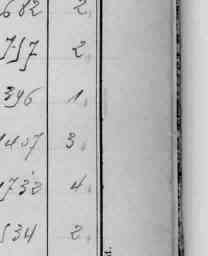 682 2.
757 2.
396 1.
1407 3.
1732 4.
534 2.